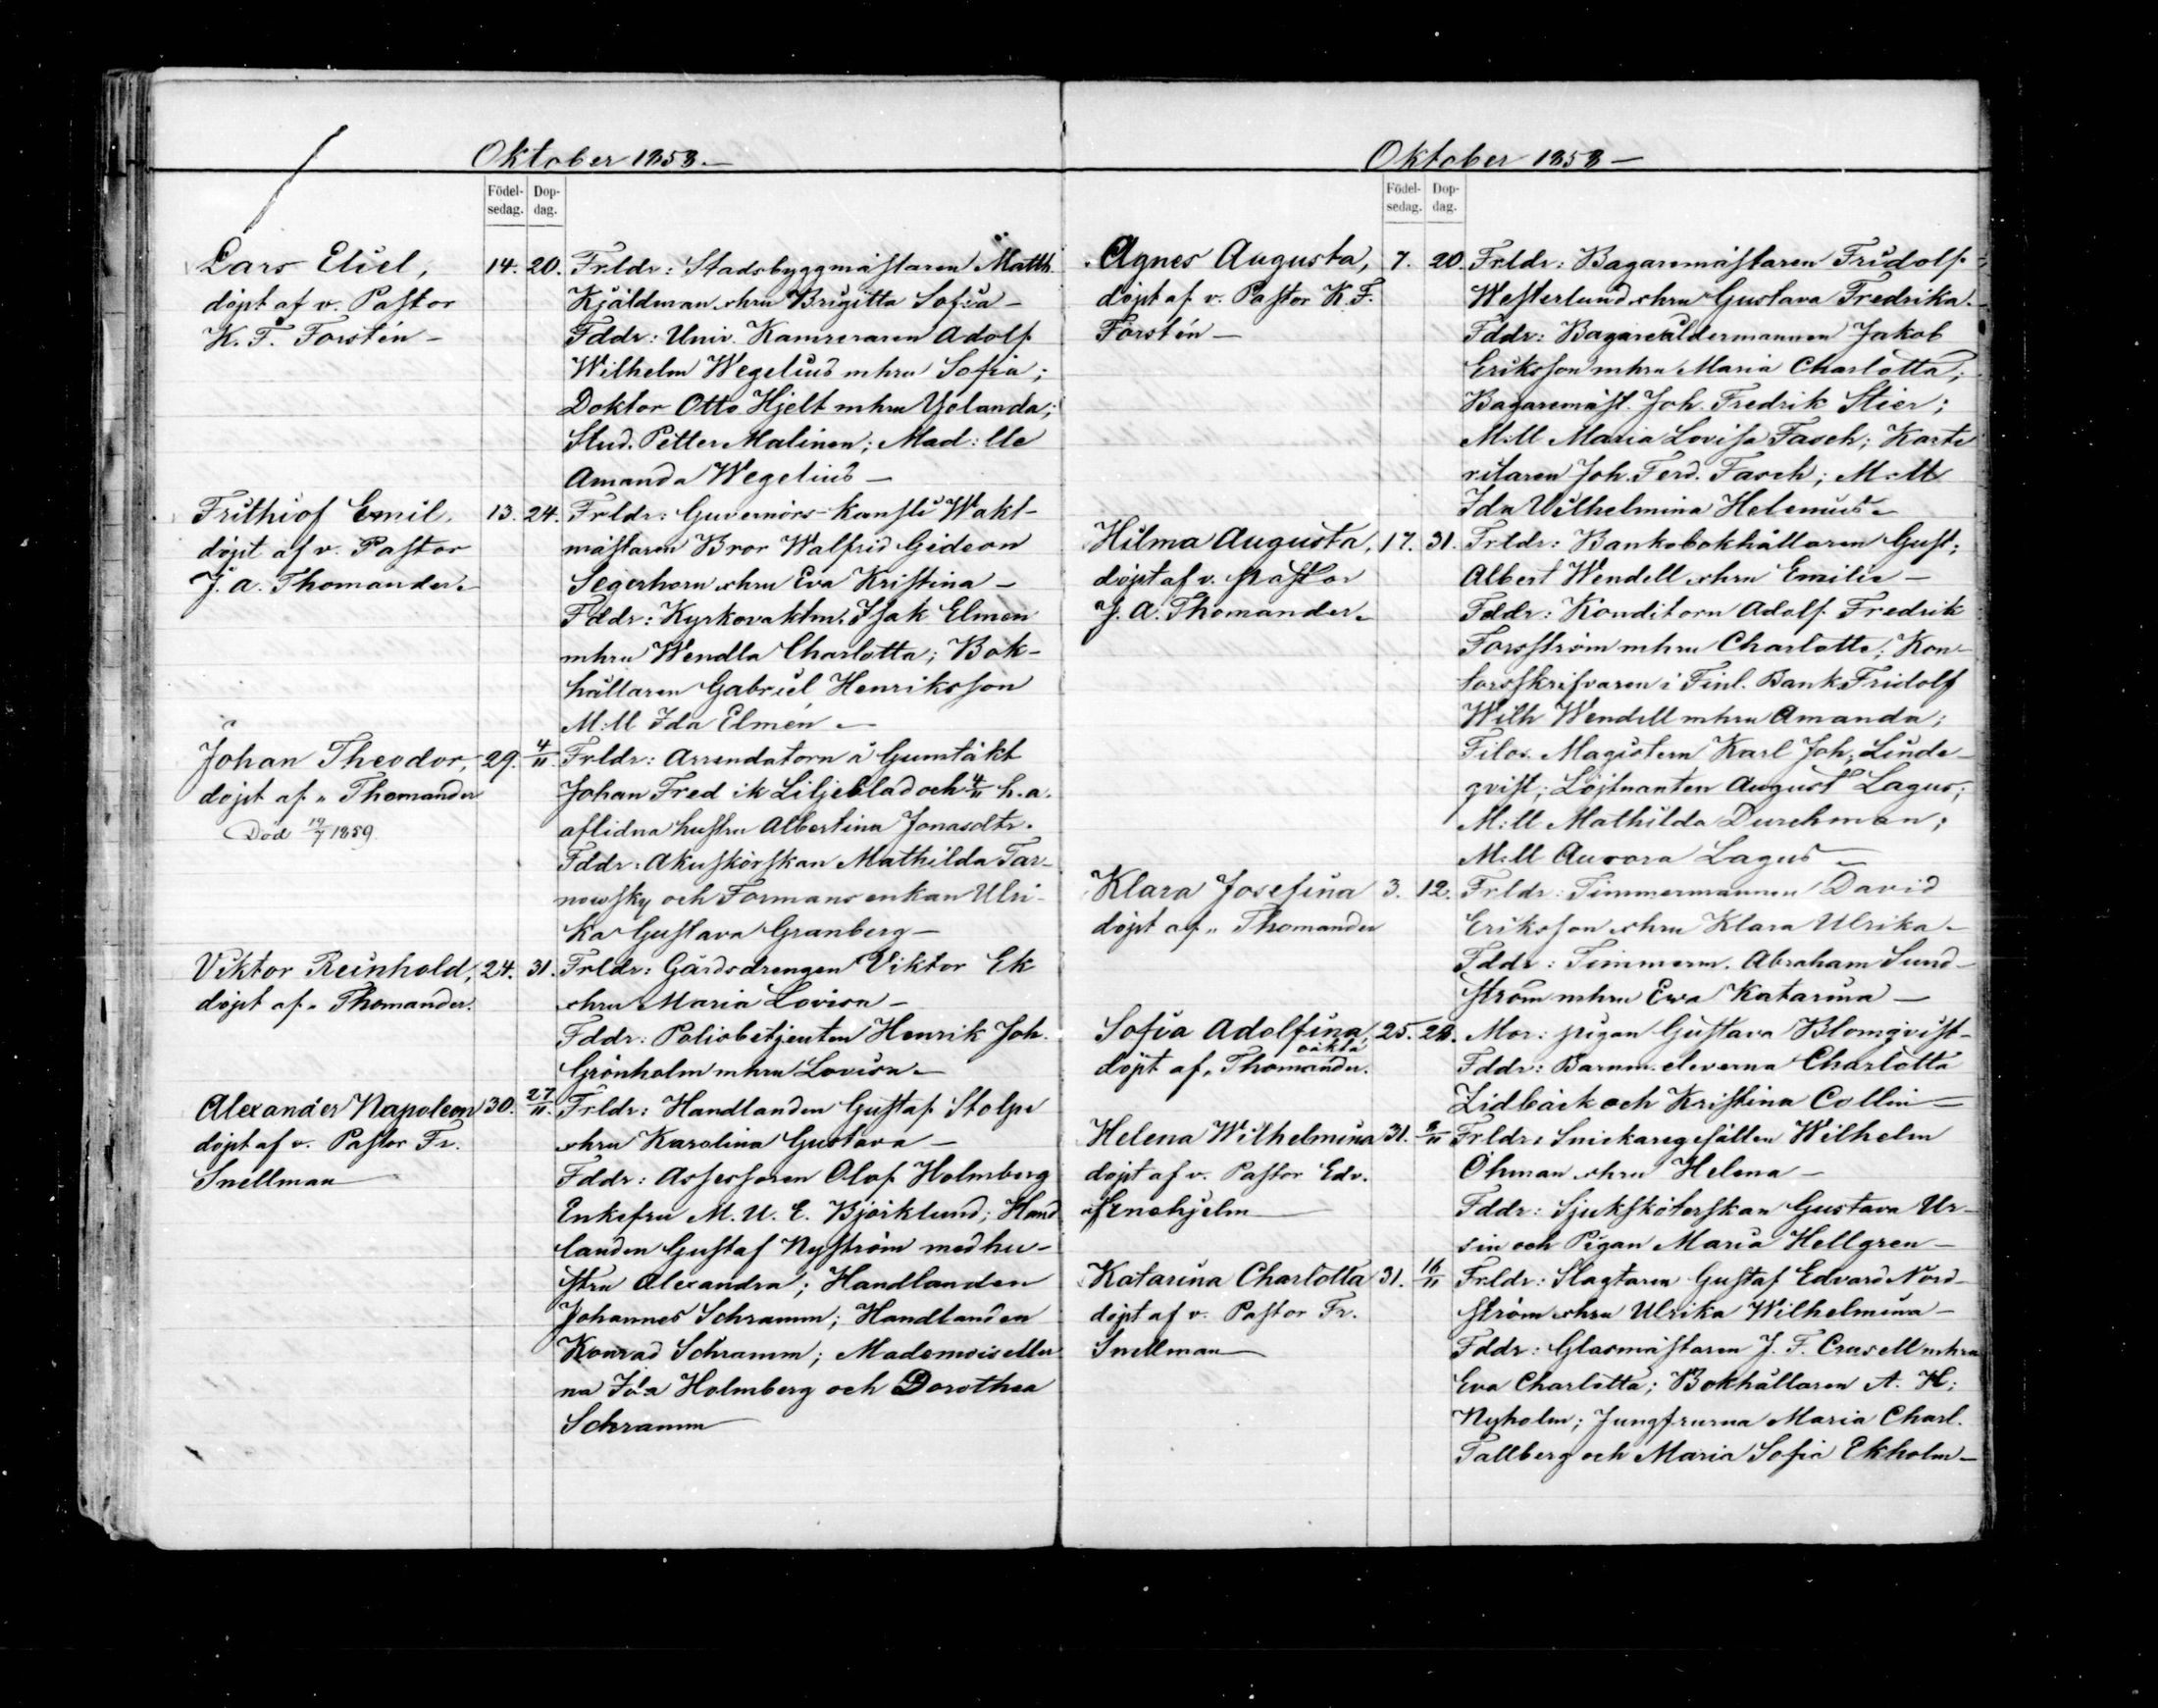 Oktober 1858.
Födel- Dop-
sedag. dag.
Lars Eliel, 14. 20. Frldr: Stadsbyggmästaren Matth.
döpt af v. Pastor Kjäldman o hru Brigitta Sofia -
K. F. Forstén - Fddr: Univ. Kamreraren Adolf
Wilhelm Wegelius m hru Sofia;
Doktor Otto Hjelt m hru Yolanda;
Stud. Petter Malinen; Mad:lle
Amanda Wegelius -
Frithiof Emil. 13. 24. Frldr: Guvernörs-kansli Wakt-
döpt af v. Pastor mästaren Bror Walfrid Gideon
J. A. Thomander. Segerhorn o hru Eva Kristina -
Fddr: Kyrkovaktm. Isak Elmén
m hru Wendla Charlotta; Bok-
hållaren Gabriel Henriksson
M:ll Ida Elmén -
Johan Theodor, 29. 4/11. Frldr: Arrendatorn å Gumtäkt
döpt af " Thomander Johan Fred ik Liljeblad och 4/11 h. a.
Död 19/7 1859 aflidna hustru Albertina Jonasdtr.
Fddr: Akuskörskan Mathilda Tar-
nowsky och Formans enkan Ulri-
ka Gustava Granberg -
Viktor Reinhold, 24. 31. Frldr: Gårdsdrengen Viktor Ek
döpt af " Thomander. o hru Maria Lovisa -
Fddr: Polisbetjenten Henrik Joh.
Grönholm m hru Lovisa -
Alexander Napoleon 30. 27/11. Frldr: Handlanden Gustaf Stolpe
döpt af v. Pastor Fr. o hru Karolina Gustava -
Snellman Fddr: Assessoren Olof Holmberg
Enkefru M. U. E. Björklund; Hand
landen Gustaf Nyström med hu-
stru Alexandra; Handlanden
Johannes Schramm; Handlanden
Konrad Schramm; Mademoiseller
na Ida Holmberg och Dorothea
Schramm
Oktober 1858 -
Födel- Dop-
sedag. dag.
Agnes Augusta, 7. 20. Frldr: Bagaremästaren Fridolf
döpt af v. Pastor K. F. Westerlund o hru Gustava Fredrika.
Forstén - Fddr: Bagareåldermannen Jakob
Eriksson m hru Maria Charlotta;
Bagaremäst. Joh. Fredrik Stier;
M:ll Maria Lovisa Fasch; Karte
ritaren Joh. Ferd. Fasch; M:ll
Ida Wilhelmina Helenius -
Hilma Augusta, 17. 31. Frldr: Bankobokhållaren Gust.
döpt af v. Pastor Albert Wendell o hru Emilie -
J. A. Thomander. Fddr: Konditorn Adolf Fredrik
Forsström m hru Charlotte; Kon-
torsskrifvaren i Finl. Bank Fridolf
Wilh Wendell m hru Amanda;
Filos. Magistern Karl Joh. Linde-
qvist; Löjtnanten August Lagus;
M:ll Mathilda Durchman;
M:ll Aurora Lagus -
Klara Josefina 3. 12. Frldr: Timmermannen David
döpt af " Thomander Eriksson o hru Klara Ulrika -
Fddr: Timmerm. Abraham Sund-
ström m hru Ewa Katarina -
Sofia Adolfina, 25. 28. Mor: pigan Gustava Blomqvist -
oäkta
döpt af " Thomander. Fddr: Barnm. eleverna Charlotta
Lidbäck och Kristina Collin -
Helena Wilhelmina 31. 8/11 Frldr: Snickaregesällen Wilhelm
döpt af v. Pastor Edv. Öhman o hru Helena -
af Enehjelm Fddr: Sjuksköterskan Gustava Ur-
sin och Pigan Maria Hellgren -
Katarina Charlotta 31. 16/11 Frldr: Slagtaren Gustaf Edvard Nord-
döpt af v. Pastor Fr. ström o hru Ulrika Wilhelmina -
Snellman Fddr: Glasmästaren J. F. Crusell m hru
Eva Charlotta; Bokhållaren A. H.
Nyholm; Jungfrurna Maria Charl.
Tallberg och Maria Sofia Ekholm -